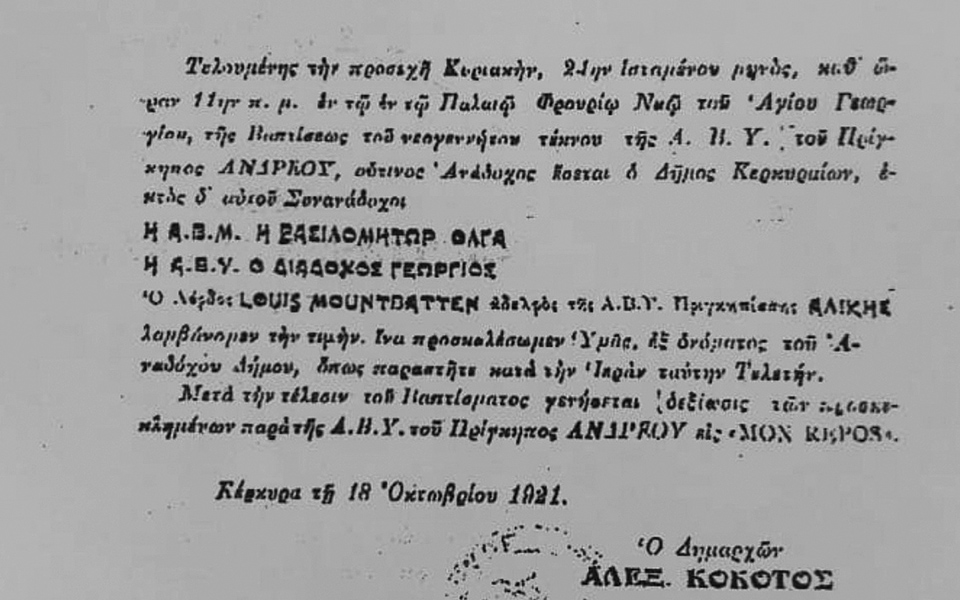 Τελουμένης τὴν προσεχῆ Κυριακὴν, 24ην ἱσταμένου μηνὸς, καθ' ὥ-
ραν 11ην π. μ. ἐν τῷ ἐν τῷ Παλαιῷ Φρουρίῳ Ναῷ τοῦ Ἁγίου Γεωρ-
γίου, τῆς Βαπτίσεως τοῦ νεογεννήτου τέκνου τῆς Α. Β. Υ. τοῦ Πρίγ-
κηπος ΑΝΔΡΕΟΥ, οὗτινος Ἀνάδοχος ἔσεται ὁ Δῆμος Κερκυραίων, ἐ-
κτὸς δ' αὐτοῦ Συνανάδοχοι
Η Α.Β.Μ. Η ΒΑΣΙΛΟΜΗΤΩΡ ΟΛΓΑ
Η Α.Β.Υ. Ο ΔΙΑΔΟΧΟΣ ΓΕΩΡΓΙΟΣ
Ὁ Λόρδος LOUIS MOUNTBATTEN ἀδελφὸς τῆς Α.Β.Υ. Πριγκηπίσσης ΑΛΙΚΗΣ
λαμβάνομεν τὴν τιμὴν. ἵνα προσκαλέσωμεν Ὑμᾶς, ἐξ ὀνόματος τοῦ Ἀ-
ναδόχου Δήμου, ὅπως παραστῆτε κατὰ τὴν Ἱερὰν ταύτην Τελετήν.
Μετὰ τὴν τέλεσιν τοῦ Βαπτίσματος γενήσεται δεξίωσις τῶν προσκε-
κλημένων παρὰ τῆς Α.Β.Υ. τοῦ Πρίγκηπος ΑΝΔΡΕΟΥ εἰς «MON REPOS».
Κέρκυρα τῇ 18 Ὀκτωβρίου 1921.
Ὁ Δημαρχῶν
ΑΛΕΞ. ΚΟΚΟΤΟΣ